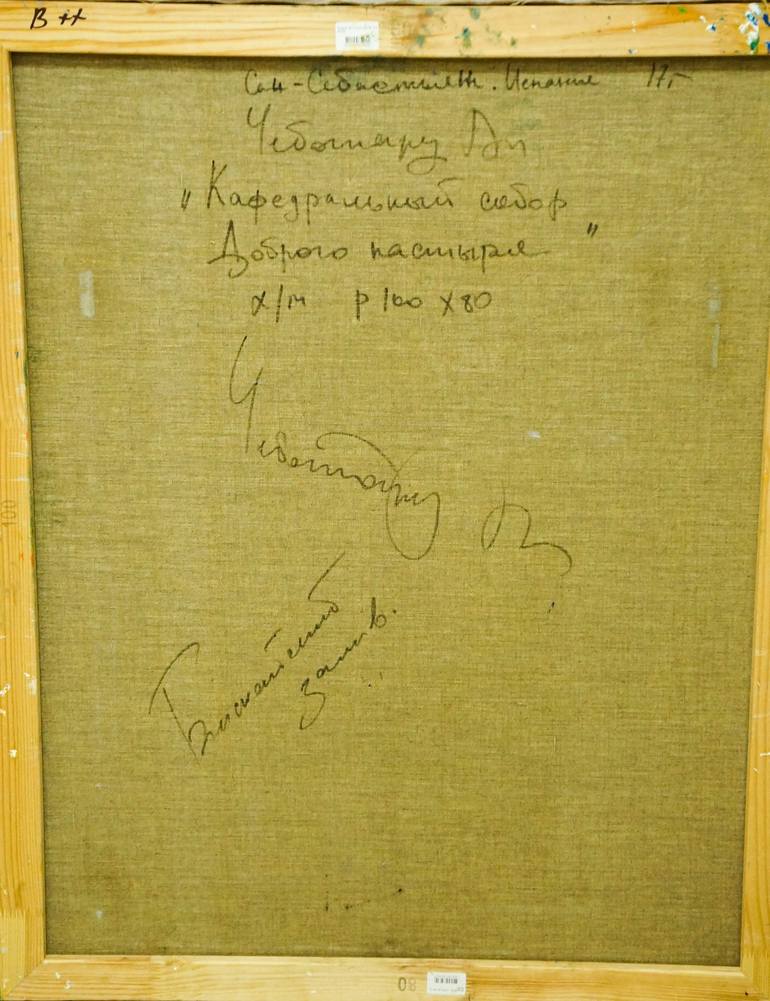 В ++
Сан-Себастьян. Испания 17 г
Чеботару Ан
„Кафедральный собор
Доброго пастыря"
х/м р 100 х 80
Чеботару
Бискайский
залив.
100
80